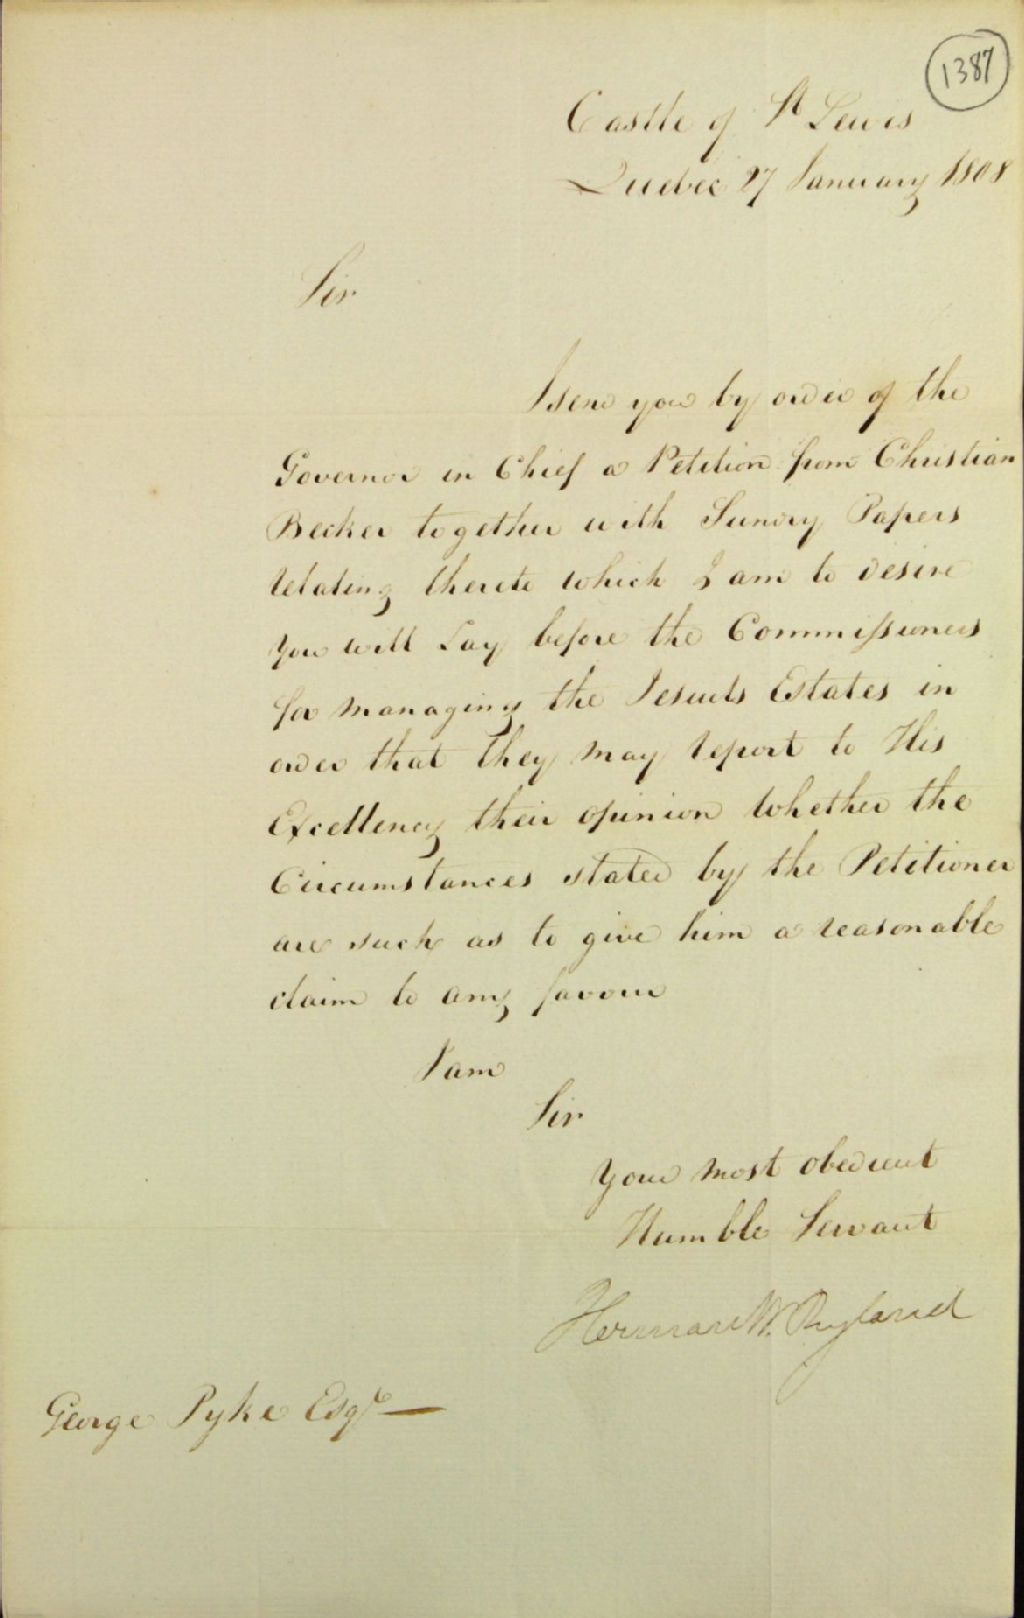 1387
Castle of St Lewis
Quebec 27 January 1808
Sir
I send you by order of the
Governor in Chief a Petition from Christian
Becker together with Sundry Papers
relating thereto which I am to desire
you will Lay before the Commissioners
for managing the Jesuits Estates in
order that they may report to His
Excellency their opinion whether the
Circumstances stated by the Petitioner
are such as to give him a reasonable
claim to any favour
I am
Sir
Your most obedient
Humble Servant
Herman W. Ryland
George Pyke Esqr